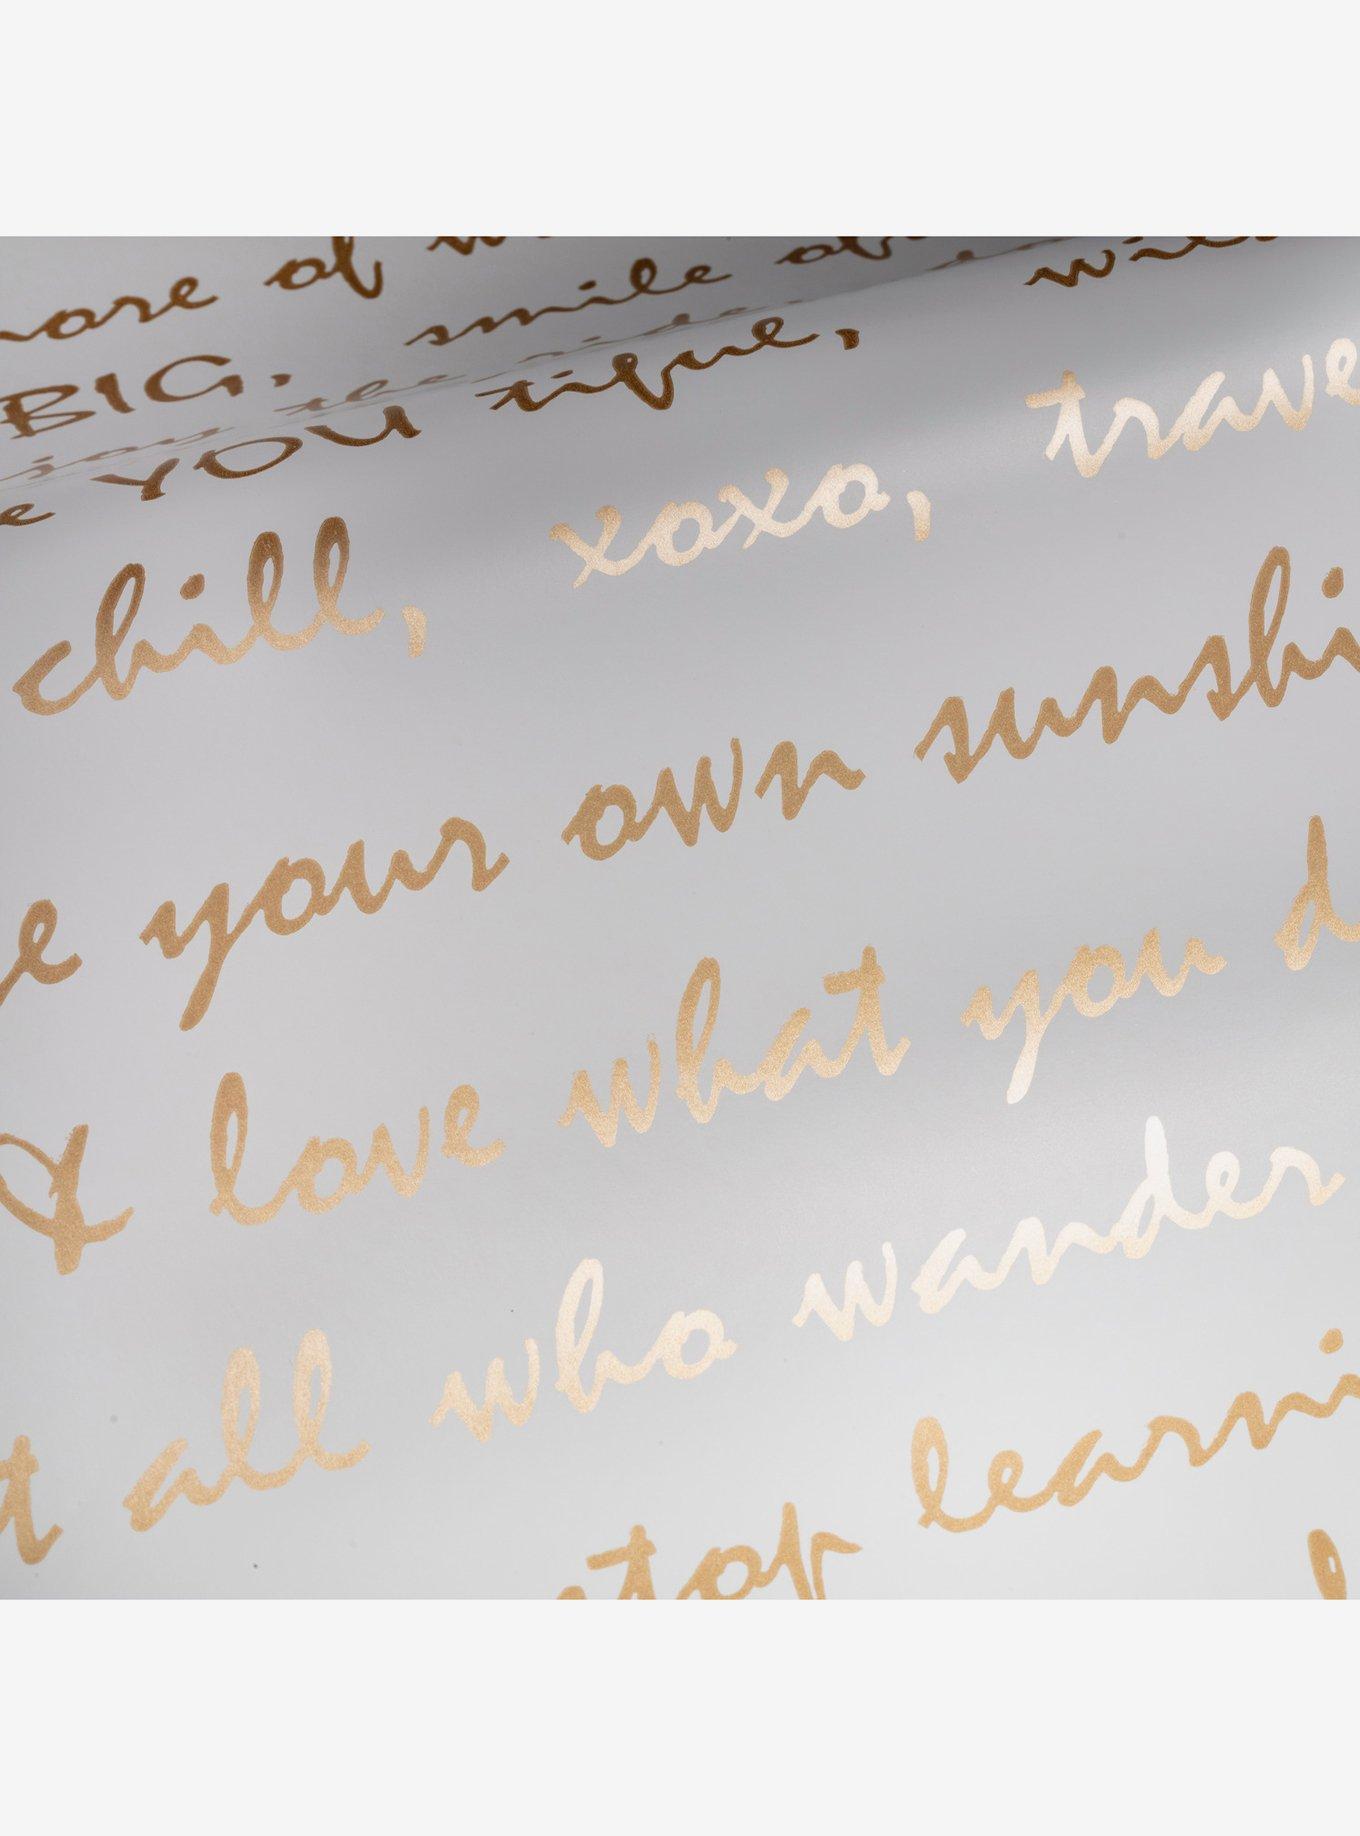 more of
smile
BIG.
the ride
YOU tique,
chill, xoxo, trave
your own sunshi
& love what you d
all who wander
learni
stop